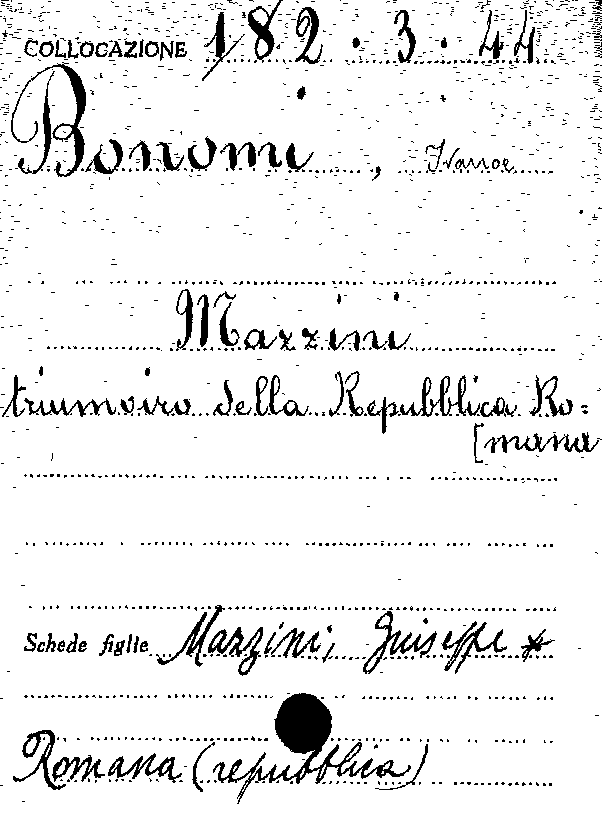 COLLOCAZIONE 182.3.44
Bonomi, Ivanoe
Mazzini
triumviro della Repubblica Ro=
[mana
Schede figlie Mazzini, Giuseppe *
Romana (repubblica)